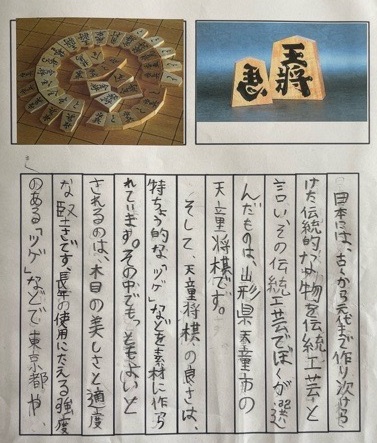 王將
日本には、古くから元代まで作り次けら
れた伝統的な物を伝統工芸と
言い、その伝統工芸でぼくが選
んだものは、山形県天童市の
天童将棋です。
そして、天童将棋の良さは、
特ちょう的な「ツゲ」などを素材に作ら
れています。その中でもっともよいと
されるのは、木目の美しさと適度
な堅さです、長年の使用にたえる強度
のある「ツゲ」などで東京都や、